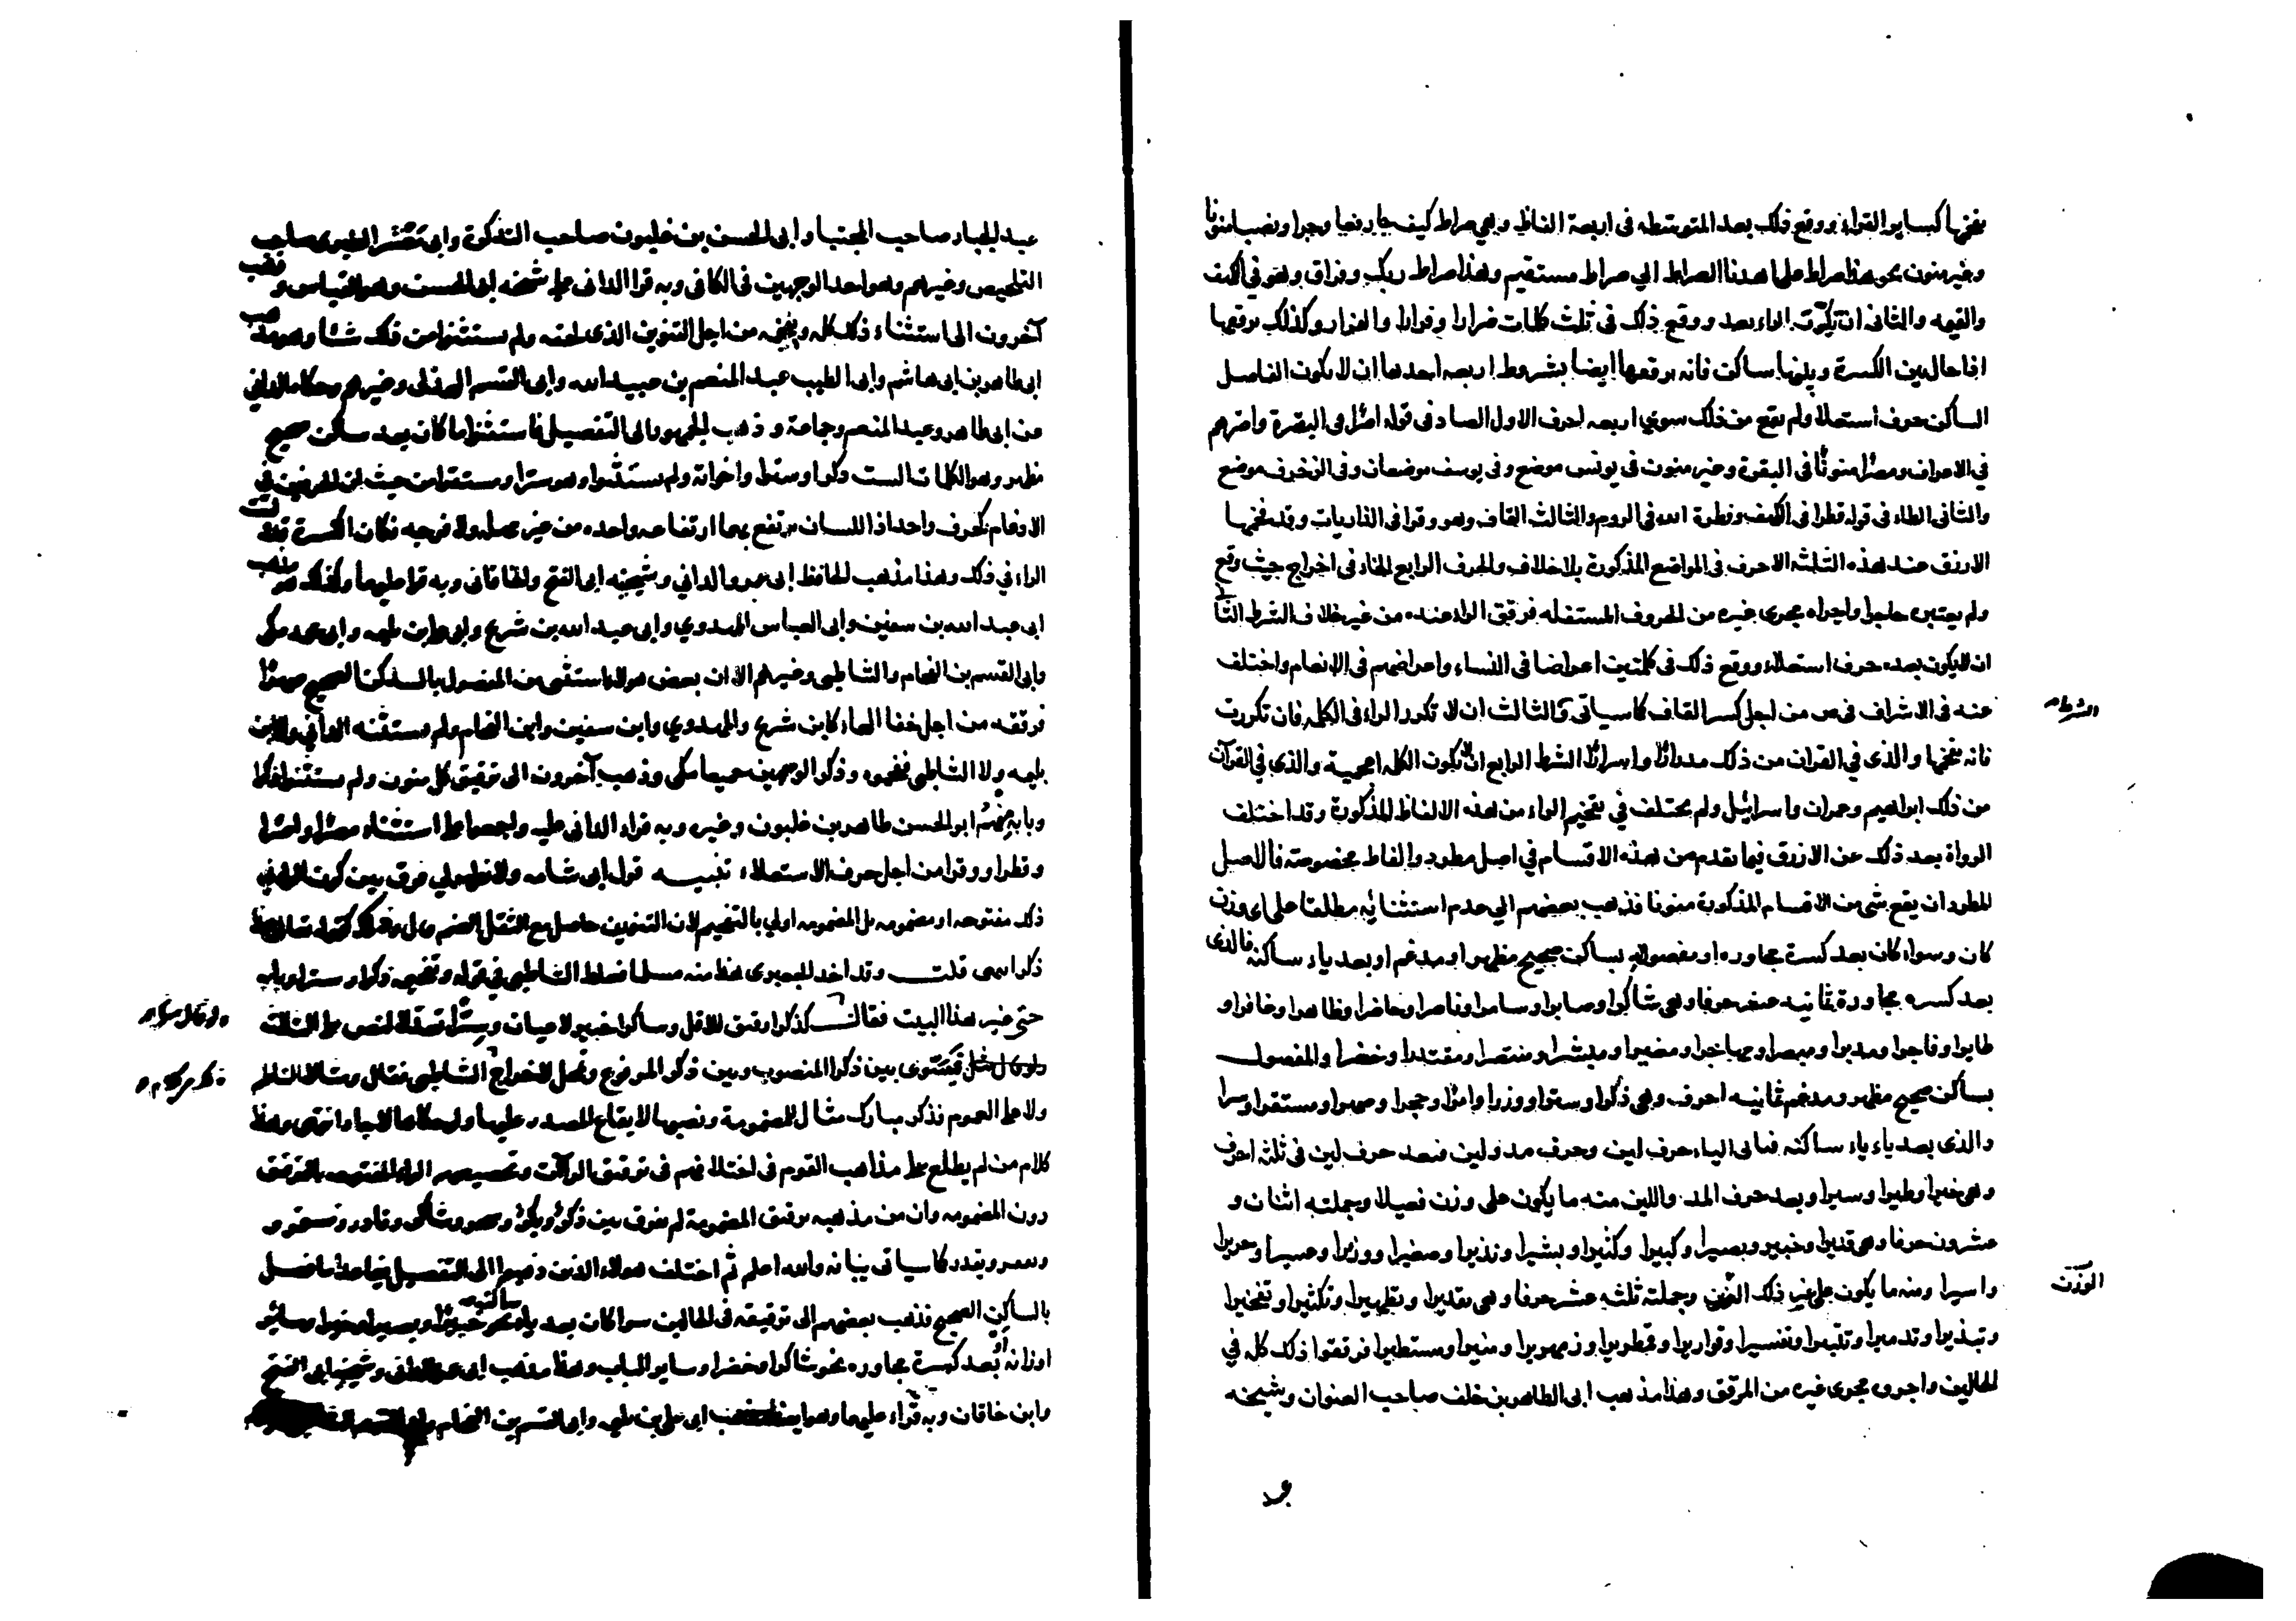 يفخمها كساير القراء ووقع ذلك بعد المتوسطه في اربعة الفاظ وهي صراط كيف جا رفعا وجرا ونصبا منونا
وغير منون نحو هذا صراط علي اهدنا الصراط الي صراط مستقيم وهذا صراط ربك وفراق وهو في الكهف
والقيمه والثاني ان تكرر الراء بعد ووقع ذلك في ثلث كلمات ضرارا وفرارا والفرار وكذلك يرققها
اذا حال بين الكسرة وبينها ساكن فانه يرققها ايضا بشروط اربعه احدها ان لا يكون الفاصل
الساكن حرف استعلا ولم يقع من ذلك سوي اربعه احرف الاول الصاد في قوله اصرا في البقرة واصرهم
في الاعراف ومصرا منونا في البقرة وغير منون في يونس موضع وفي يوسف موضعان وفي الزخرف موضع
والثاني الطاء في قوله قطرا في الكهف وفطرة الله في الروم والثالث القاف وهو وقرا في الذاريات وقد فخمها
الازرق عند هذه الثلثه الاحرف في المواضع المذكورة بلا خلاف والحرف الرابع الخاء في اخراج حيث وقع
ولم يعتبره حاجزا واجراه مجرى غيره من الحروف المستفله فرقق الراء عنده من غير خلاف الشرط الثا
ان لا يكون بعده حرف استعلاء ووقع ذلك في كلمتين اعراضا في النساء واعراضهم في الانعام واختلف
عنه في الاشراق في ص من اجل كسر القاف كما سياتي والثالث ان لا تكرر الراء في الكلمه فان تكررت
الشرط
فانه يفخمها والذي في القران من ذلك مدرارا واسرارا الشرط الرابع ان لا تكون الكلمه اعجمية والذي في القرآن
من ذلك ابراهيم وعمران واسرائيل ولم يختلف في تفخيم الراء من هذه الالفاظ المذكورة وقد اختلف
الرواة بعد ذلك عن الازرق فيما تقدم من هذه الاقسام في اصل مطرد والفاظ مخصوصة فالاصل
المطرد ان يقع شي من الاقسام المذكورة منونا فذهب بعضهم الي عدم استثنائه مطلقا على اي وزن
كان وسواء كان بعد كسرة مجاوره او مفصوله بساكن صحيح مظهرا او مدغم او بعد ياء ساكنه فالذي
بعد كسره مجاورة ثمانيه عشر حرفا وهي شاكرا وصابرا وسامرا وناصرا وحاضرا وظاهرا وعاقرا و
طايرا وفاجرا ومدبرا ومبصرا ومهاجرا ومغيرا ومبشرا ومنتصرا ومقتدرا وخضرا والمفصول
بساكن صحيح مظهر ومدغم ثمانيه احرف وهي ذكرا وسترا ووزرا وامرا وحجرا وصهرا ومستقرا وسرا
والذي بعد ياء ساكنه فتاتي الياء حرف لين وحرف مد ولين فبعد حرف لين في ثلثه احرف
وهي خيرا وطيرا وسيرا وبعد حرف المد واللين منه ما يكون على وزن فعيلا وجملته اثنان و
عشرون حرفا وهي قديرا وخبيرا وبصيرا وكبيرا وكثيرا وبشيرا ونذيرا وصغيرا ووزيرا وعسيرا وحريرا
واسيرا ومنه ما يكون علي غير ذلك الوزن وجملته ثلثه عشر حرفا وهي تقديرا وتطهيرا وتكثيرا وتفجيرا
الوزن
وتبذيرا وتدميرا وتتبيرا وتفسيرا وقواريرا وقمطريرا وزمهريرا ومنيرا ومستطيرا فرققوا ذلك كله في
الحالين واجروه مجرى غيره من المرقق وهذا مذهب ابي الطاهر بن خلف صاحب العنوان وشيخه
عبد الجبار صاحب المجتبا وابي الحسن بن غلبون صاحب التذكرة وابي معشر الطبري صاحب
التلخيص وغيرهم وهو احد الوجهين في الكافي وبه قرا الداني على شيخه ابي الحسن وهو القياس وذهب
آخرون الى استثناء ذلك كله وتفخيمه من اجل التنوين الذي لحقه ولم يستثنوا من ذلك شئا وهو مذهب
ابي طاهر بن ابي هاشم وابي الطيب عبد المنعم بن عبيد الله وابي القسم الهذلي وغيرهم وحكاه الداني
عن ابي طاهر وعبد المنعم وجماعة وذهب الجمهور الى التفصيل فاستثنوا ما كان بعد ساكن صحيح
مظهر وهو الكلمات الست ذكرا وسترا واخواته ولم يستثنوا وهو سرا ومستقرا من حيث ان الحرفين في
الادغام كحرف واحد اذ اللسان يرتفع بهما ارتفاعه واحده من غير مهله ولا فرجه فكان الكسرة قد وليت
الراء في ذلك وهذا مذهب الحافظ ابي عمرو الداني وشيخيه ابي الفتح والخاقاني وبه قرا عليهما وكذلك هو مذهب
ابي عبد الله بن سفين وابي العباس المهدوي وابي عبد الله بن شريح وابي علي بن بليمه وابي محمد مكي
وابي القسم بن الفحام والشاطبي وغيرهم الا ان بعض هولاء استثنى من المفصول بالساكن الصحيح صهرا
فرققه من اجل خفا الهاء كابن شريح والمهدوي وابن سفين وابن الفحام ولم يستثنه الداني ولا ابن
بليمه ولا الشاطبي ففخموه وذكر الوجهين جميعا مكي وذهب آخرون الى ترقيق كل منون ولم يستثنوا ذكرا
وبابه فخمه ابو الحسن طاهر بن غلبون وغيره وبه قراء الداني عليه واجمعوا على استثناء مصرا واصرا
وقطرا ووقرا من اجل حرف الاستعلاء تنبيه قول ابي شامه ولا يظهر لي فرق بين كون الراء في
ذلك مفتوحه او مضمومه بل المضمومه اولي بالتفخيم لان التنوين حاصل مع الثقل الضم قال وذلك كقوله تعالى هذا
ذكر انتهى قلت وقد اخذ الجعبري هذا منه مسلما فغلط الشاطبي في قوله وتفخيمه ذكرا وسترا وبابه
حتى غير هذا البيت فقال كذكرا رقيق للاقل وشاكرا خبير لاعيان وسرا تعدلا فنص على الثلثة
فيستوى بين ذكرا المنصوب وبين ذكر المرفوع وتمحل لاخراج الشاطبي فقال ومثالا الناظم
ولا على العموم فذكر مبارك مثال للمضمومة ونصبها لايقاع المصدر عليها ولو حكاها لاجاد انتهى وهذا
كلام من لم يطلع على مذاهب القوم في اختلافهم في ترقيق الراآت وتخصيصهم الراء المفتوحه بالترقيق
دون المضمومه وان من مذهبه ترقيق المضمومة لم يفرق بين ذكر وبكر وسحر وشاكر وقادر ومستمر و
ويعمر ويقدر كما سياتي بيانه والله اعلم ثم اختلف هولاء الذين ذهبوا الى التفصيل فيما عدا ما فصل
بالساكن الصحيح فذهب بعضهم الى ترقيقه في الحالين سوا كان بعد ياء ساكنه نحو خبيرا وبصيرا وخيرا وساير
اوزانه او بعد كسرة مجاوره نحو شاكرا وخضرا وساير الباب وهذا مذهب ابي عمرو الداني وشيخيه ابي الفتح
وابن خاقان وبه قراء عليهما وهو ايضا مذهب ابي علي بن بليمه وابي القسم بن الفحام